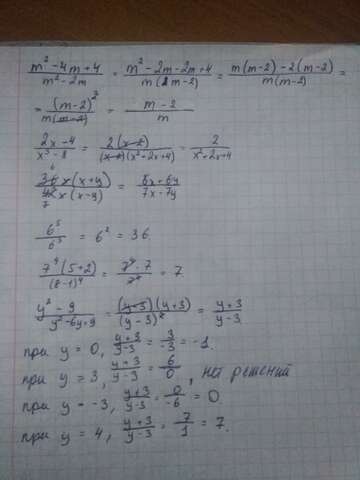 m² - 4m + 4 / m² - 2m = m² - 2m - 2m + 4 / m(2m - 2) = m(m-2) - 2(m-2) / m(m-2) =
= (m-2)² / m(m-2) = m - 2 / m
2x - 4 / x³ - 8 = 2(x-2) / (x-2)(x²+2x+4) = 2 / x²+2x+4
36 6 x(x+y) / 42 7 x(x-y) = 6x+6y / 7x-7y
6⁵ / 6³ = 6² = 36
7⁴(5+2) / (8-1)⁴ = 7⁴·7 / 7⁴ = 7
y² - 9 / y² - 6y + 9 = (y-3)(y+3) / (y-3)² = y+3 / y-3
при y = 0, y+3 / y-3 = 3 / 3 = -1.
при y = 3, y+3 / y-3 = 6 / 0, нет решений
при y = -3, y+3 / y-3 = 0 / -6 = 0.
при y = 4, y+3 / y-3 = 7 / 1 = 7.